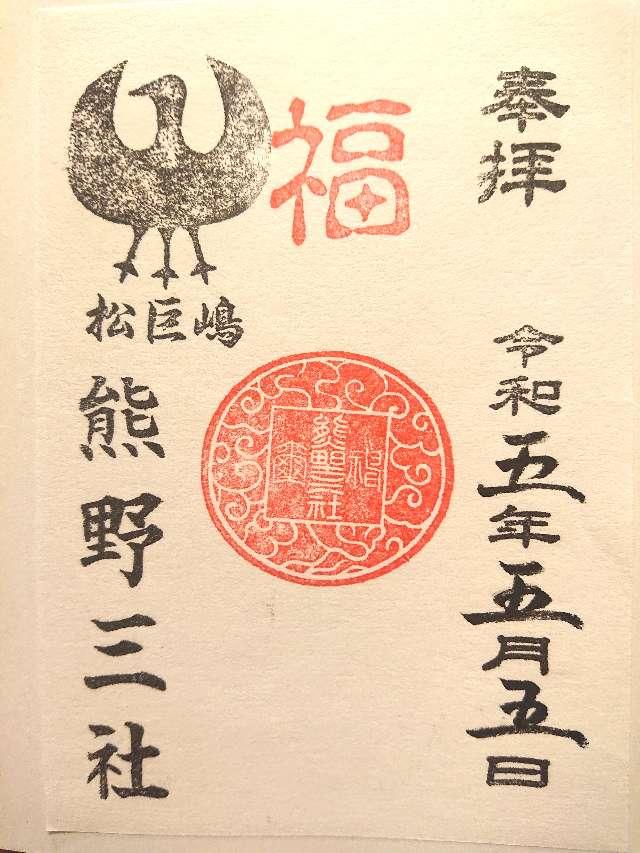 奉拝
令和五年五月五日
福
松巨嶋
熊野三社